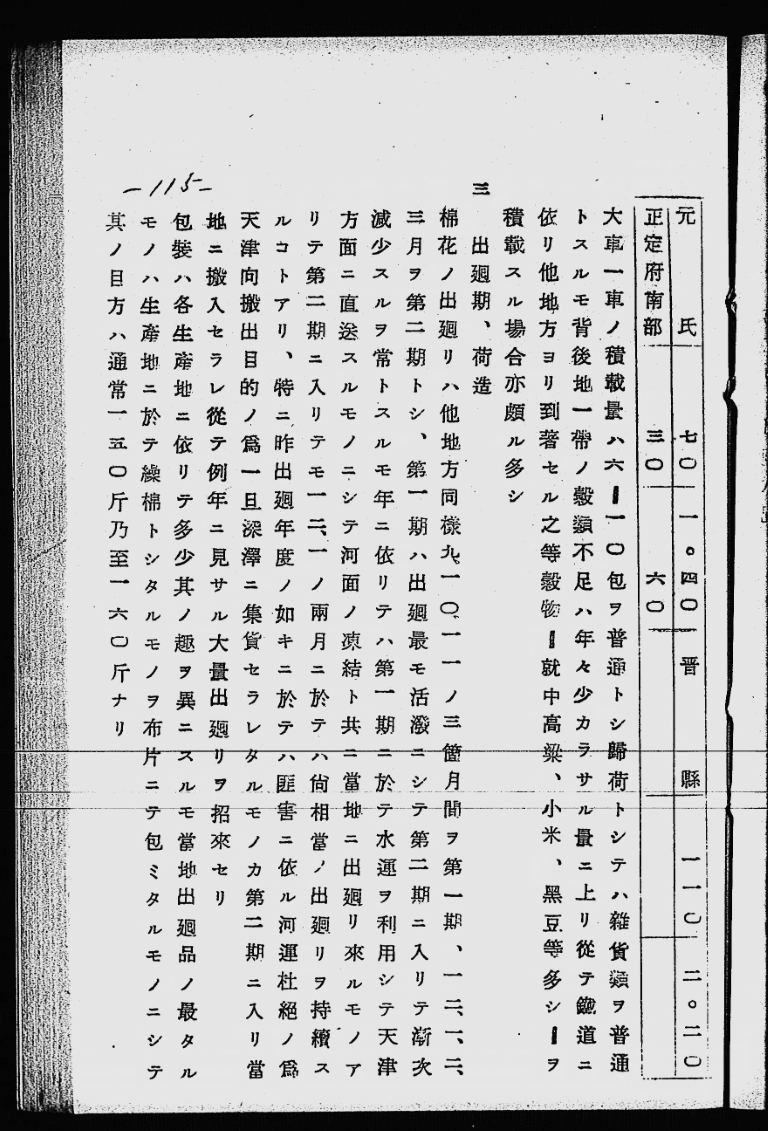 元氏 七〇 一。四〇 晋縣 一一〇 二。二〇
正定府南部 三〇 六〇
大車一車ノ積載量ハ六ー一〇包ヲ普通トシ歸荷トシテハ雜貨類ヲ普通
トスルモ背後地一帶ノ穀類不足ハ年々少カラサル量ニ上リ從テ鐵道ニ
依リ他地方ヨリ到著セル之等穀物ー就中高粱、小米、黑豆等多シーヲ
積載スル場合亦頗ル多シ
三 出廻期、荷造
棉花ノ出廻リハ他地方同樣九、一〇、一一ノ三箇月間ヲ第一期、一二、一、二、
三月ヲ第二期トシ、第一期ハ出廻最モ活潑ニシテ第二期ニ入リテ漸次
減少スルヲ常トスルモ年ニ依リテハ第一期ニ於テ水運ヲ利用シテ天津
方面ニ直送スルモノニシテ河面ノ凍結ト共ニ當地ニ出廻リ來ルモノア
リテ第二期ニ入リテモ一二、一ノ兩月ニ於テハ尙相當ノ出廻リヲ持續ス
ルコトアリ、特ニ昨出廻年度ノ如キニ於テハ匪害ニ依ル河運杜絕ノ爲
天津向搬出目的ノ爲一旦深澤ニ集貨セラレタルモノカ第二期ニ入リ當
地ニ搬入セラレ從テ例年ニ見サル大量出廻リヲ招來セリ
包裝ハ各生產地ニ依リテ多少其ノ趣ヲ異ニスルモ當地出廻品ノ最タル
モノハ生產地ニ於テ繰棉トシタルモノヲ布片ニテ包ミタルモノニシテ
其ノ目方ハ通常一五〇斤乃至一六〇斤ナリ
-115-